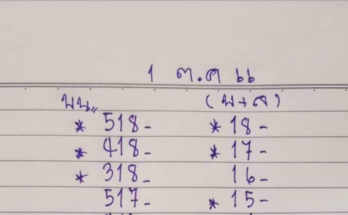 1 ต.ค 66
บน,, (บ+ล)
* 518- * 18-
* 418- * 17-
* 318- 16-
517- * 15-